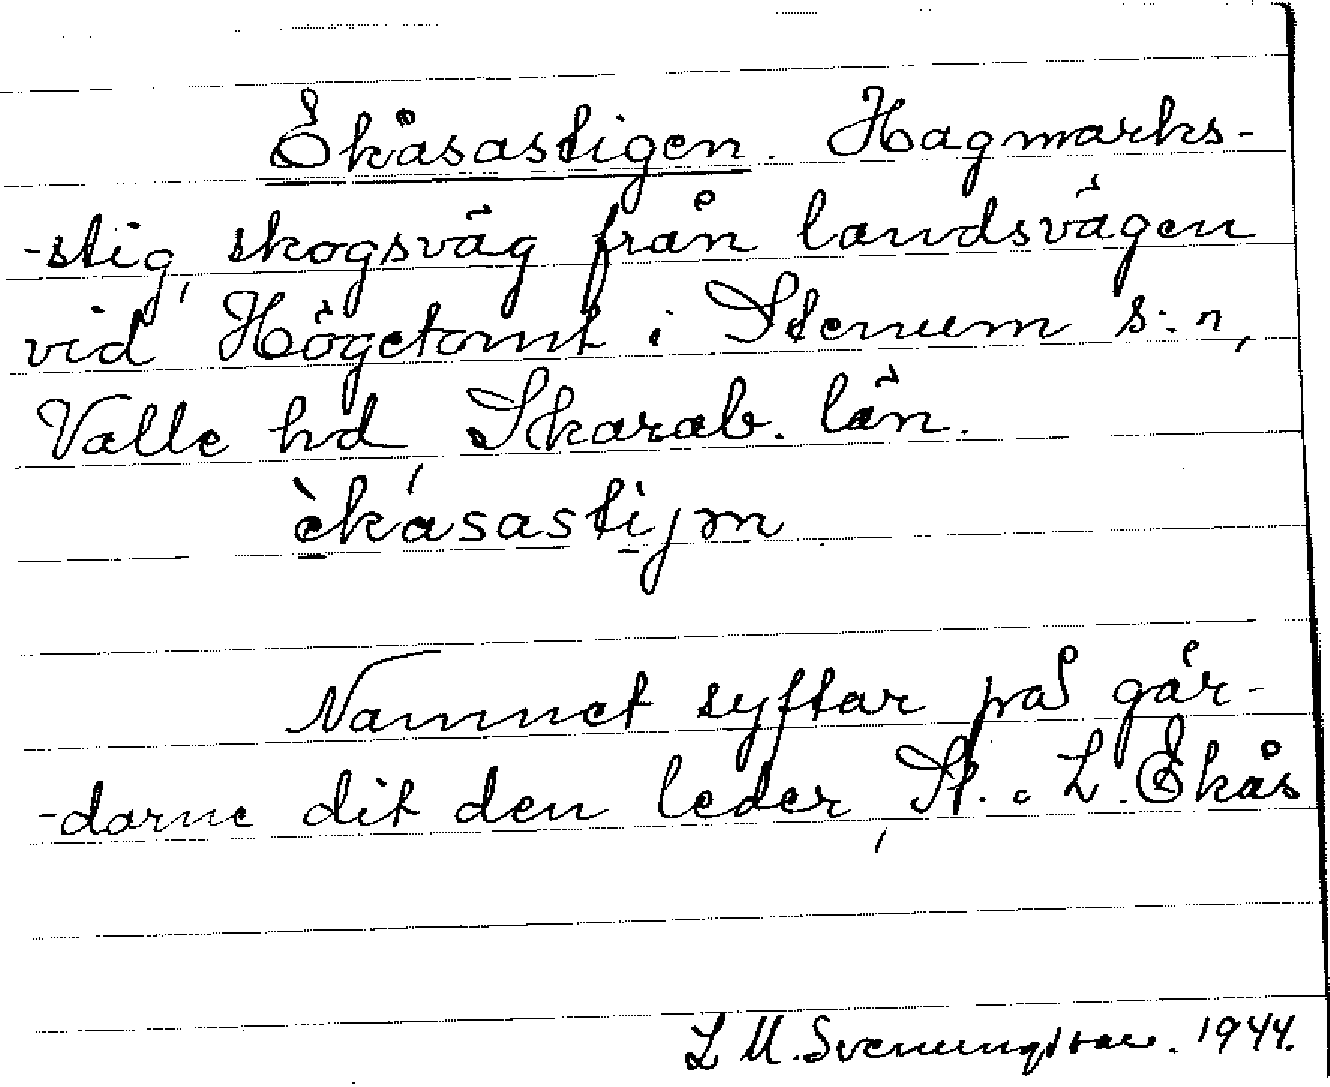 Ekåsastigen. Hagmarks-
-stig, skogsväg från landsvägen
vid Högetomt i Stenum s:n,
Valle hd Skarab. län.
èkåsastijṇ
Namnet syftar på går-
-darne dit den leder, St. o L. Ekås
L M. Svenungsson. 1944.